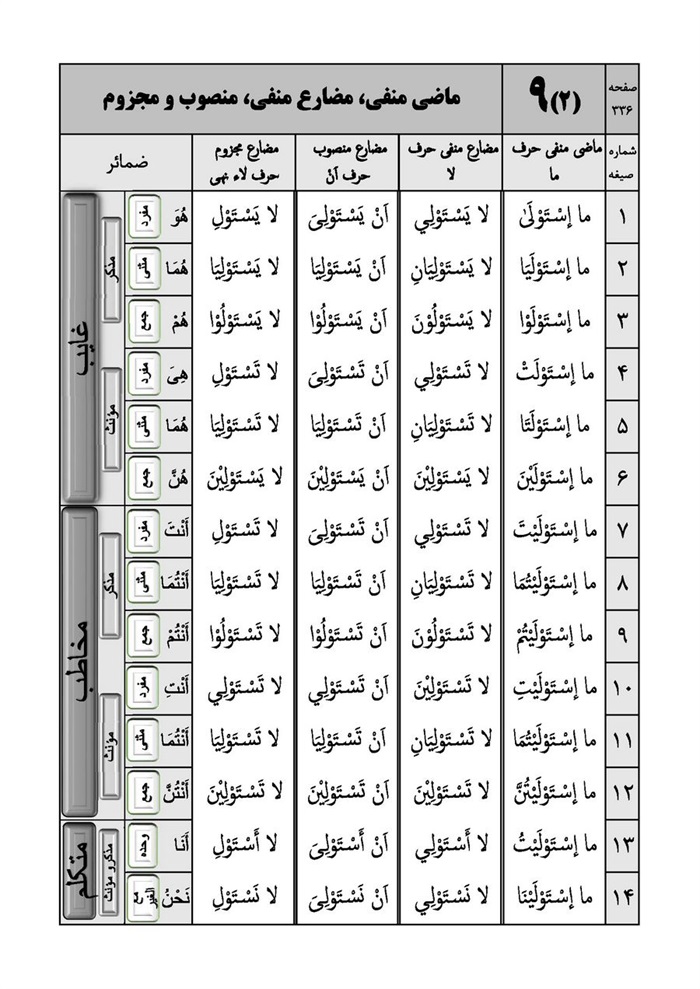 صفحه ۳۳۶ (۲)۹ ماضی منفی، مضارع منفی، منصوب و مجزوم
شماره صیغه ماضی منفی حرف ما مضارع منفی حرف لا مضارع منصوب حرف اَنْ مضارع مجزوم حرف لاء نهی ضمائر
۱ ما إسْتَوْلَىٰ لا يَسْتَوْلِي اَنْ يَسْتَوْلِىَ لا يَسْتَوْلِ هُوَ مفرد مذکر غایب
۲ ما إسْتَوْلَيَا لا يَسْتَوْلِيَانِ اَنْ يَسْتَوْلِيَا لا يَسْتَوْلِيَا هُمَا مثنی
۳ ما إسْتَوْلَوْا لا يَسْتَوْلُوْنَ اَنْ يَسْتَوْلُوْا لا يَسْتَوْلُوْا هُمْ جمع
۴ ما إسْتَوْلَتْ لا تَسْتَوْلِي اَنْ تَسْتَوْلِىَ لا تَسْتَوْلِ هِىَ مفرد مؤنث
۵ ما إسْتَوْلَتَا لا تَسْتَوْلِيَانِ اَنْ تَسْتَوْلِيَا لا تَسْتَوْلِيَا هُمَا مثنی
۶ ما إسْتَوْلَيْنَ لا يَسْتَوْلِيْنَ اَنْ يَسْتَوْلِيْنَ لا يَسْتَوْلِيْنَ هُنَّ جمع
۷ ما إسْتَوْلَيْتَ لا تَسْتَوْلِي اَنْ تَسْتَوْلِىَ لا تَسْتَوْلِ أَنْتَ مفرد مذکر مخاطب
۸ ما إسْتَوْلَيْتُمَا لا تَسْتَوْلِيَانِ اَنْ تَسْتَوْلِيَا لا تَسْتَوْلِيَا أَنْتُمَا مثنی
۹ ما إسْتَوْلَيْتُمْ لا تَسْتَوْلُوْنَ اَنْ تَسْتَوْلُوْا لا تَسْتَوْلُوْا أَنْتُمْ جمع
۱۰ ما إسْتَوْلَيْتِ لا تَسْتَوْلِيْنَ اَنْ تَسْتَوْلِي لا تَسْتَوْلِي أَنْتِ مفرد مؤنث
۱۱ ما إسْتَوْلَيْتُمَا لا تَسْتَوْلِيَانِ اَنْ تَسْتَوْلِيَا لا تَسْتَوْلِيَا أَنْتُمَا مثنی
۱۲ ما إسْتَوْلَيْتُنَّ لا تَسْتَوْلِيْنَ اَنْ تَسْتَوْلِيْنَ لا تَسْتَوْلِيْنَ أَنْتُنَّ جمع
۱۳ ما إسْتَوْلَيْتُ لا أَسْتَوْلِي اَنْ أَسْتَوْلِىَ لا أَسْتَوْلِ أَنَا وحده مذکر و مؤنث متکلم
۱۴ ما إسْتَوْلَيْنَا لا نَسْتَوْلِي اَنْ نَسْتَوْلِىَ لا نَسْتَوْلِ نَحْنُ مع الغیر